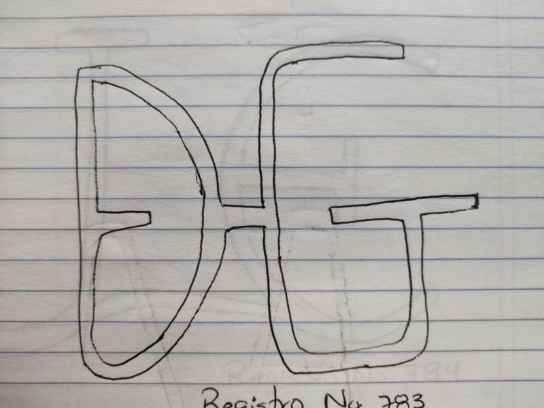 DG
Registro No. 783